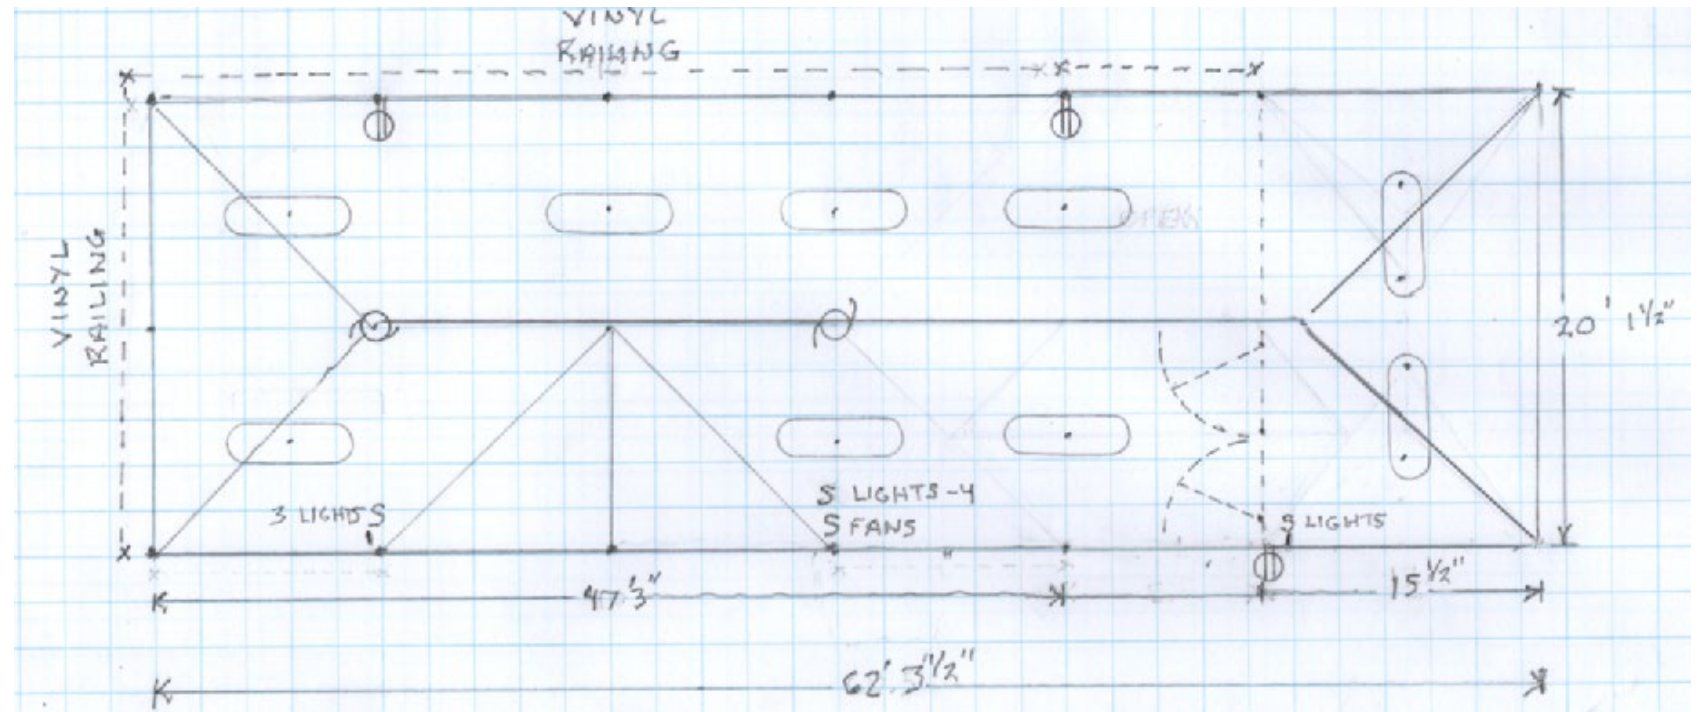 VINYL
RAILING
VINYL
RAILING
20' 1½"
3 LIGHTS
S LIGHTS-4
S FANS
S LIGHTS
47'3"
15½"
62' 3"½"